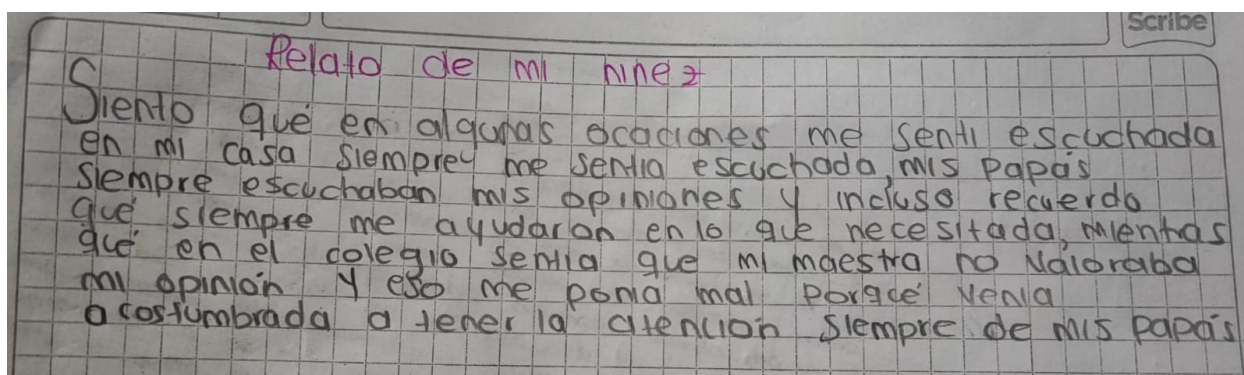 Scribe
Relato de mi niñez
Siento qué en algunas ocaciones me sentí escuchada
en mi casa siempre me sentia escuchada, mis papás
siempre escuchaban mis opiniones y incluso recuerdo
qué siempre me ayudaron en lo que necesitada, mientras
qué en el colegio sentia que mi maestra no valoraba
mi opinión y eso me ponia mal porqué venia
acostumbrada a tener la atención siempre de mis papás